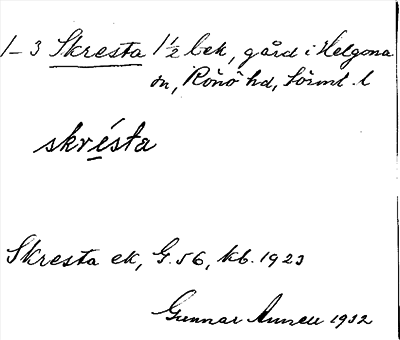 1–3 Skresta 1½ bek, gård i Helgona
sn, Rönö hd, Sörml. l
skrésta
Skresta ek, G. 56, kb. 1923
Gunnar 1932